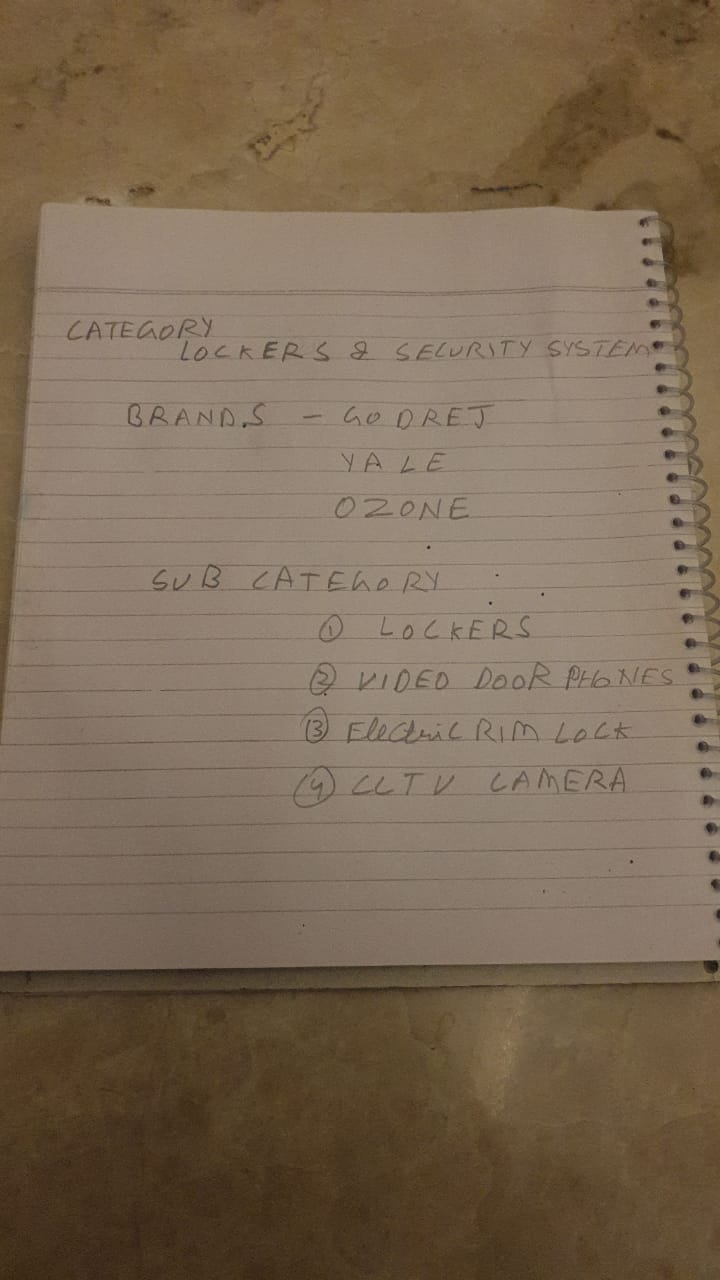 CATEGORY
LOCKERS & SECURITY SYSTEM
BRANDS - GODREJ
YALE
OZONE
SUB CATEGORY
① LOCKERS
② VIDEO DOOR PHONES
③ Electric RIM LOCK
④ CCTV CAMERA